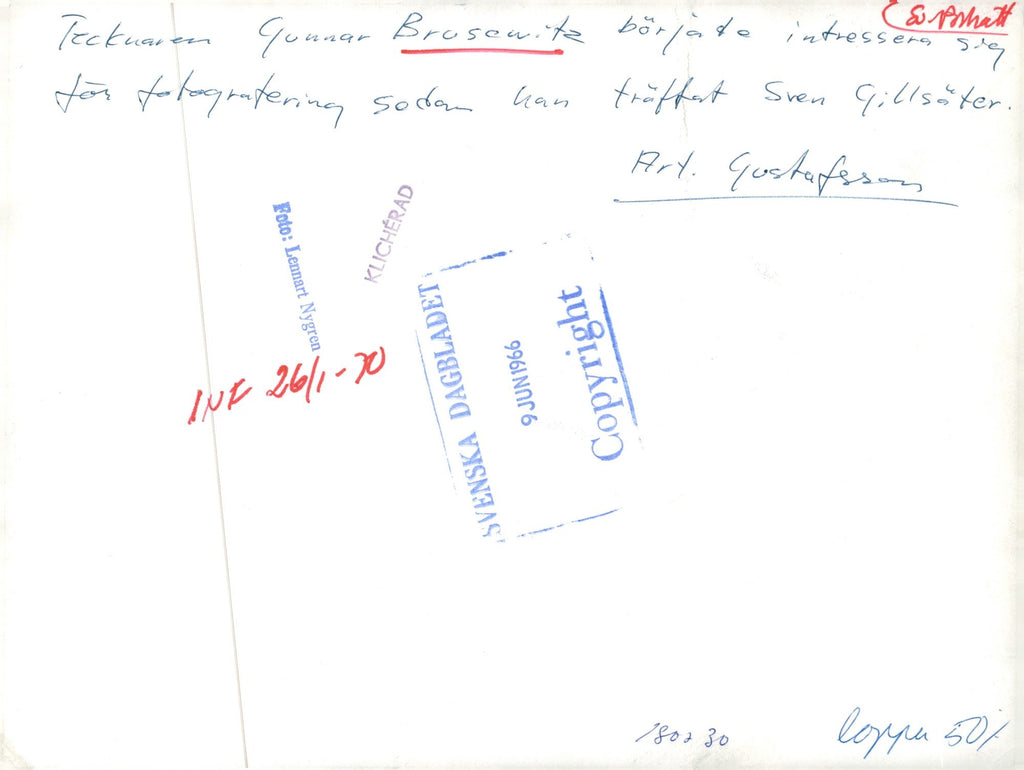 Tecknaren Gunnar Brusewitz började intressera sig
för fotografering sedan han träffat Sven Gillsäter.
Art. Gustafsson
Foto: Lennart Nygren
KLICHÉRAD
SVENSKA DAGBLADET
9 JUN 1966
Copyright
INF 26/1-70
30
50%